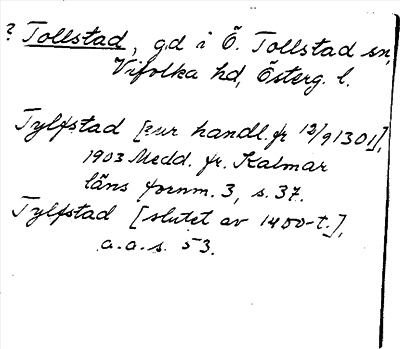 ? Tollstad, gd i Ö. Tollstad sn,
Vifolka hd, Österg. l.
Tylfstad [zur handl. fr 12/9 1301],
1903 Medd. fr. Kalmar
läns fornm. 3, s. 37.
Tylfstad [slutet av 1400-t.],
a.a.s. 53.